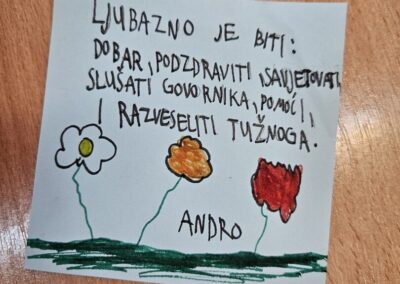 LJUBAZNO JE BITI:
DOBAR, PODZDRAVITI, SAVJETOVATI,
SLUŠATI GOVORNIKA, POMOĆI,
I RAZVESELITI TUŽNOGA.
ANDRO